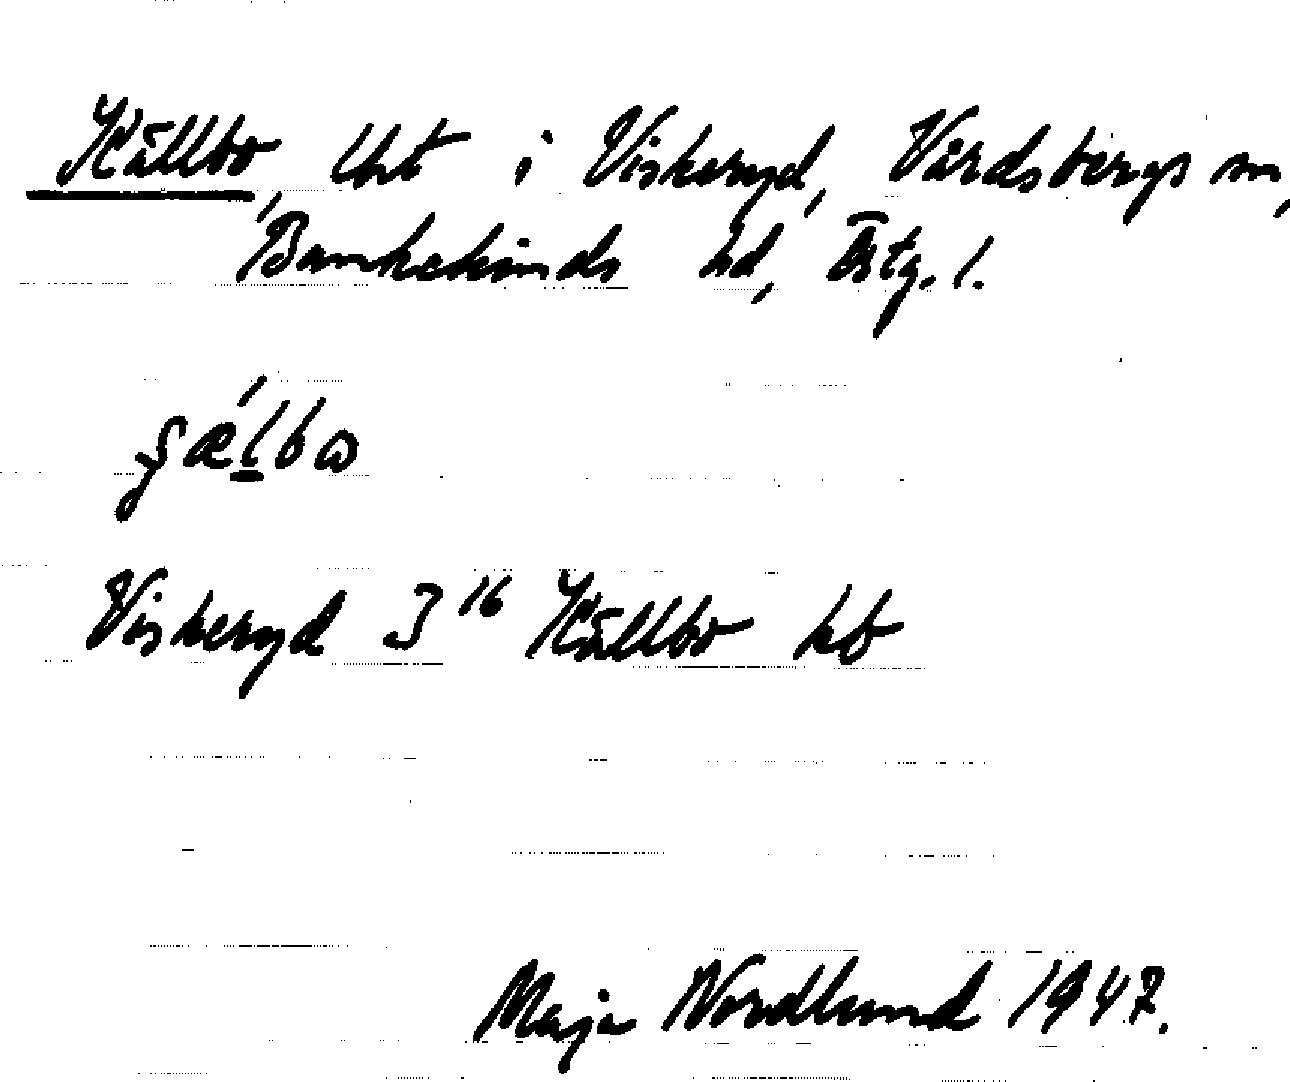 Källbo, lht i Viskeryd, Vårdsbergs sn,
Bankekinds hd, Östg. l.
Viskeryd 3¹⁶ Källbo hb
Maja Nordlund 1947.